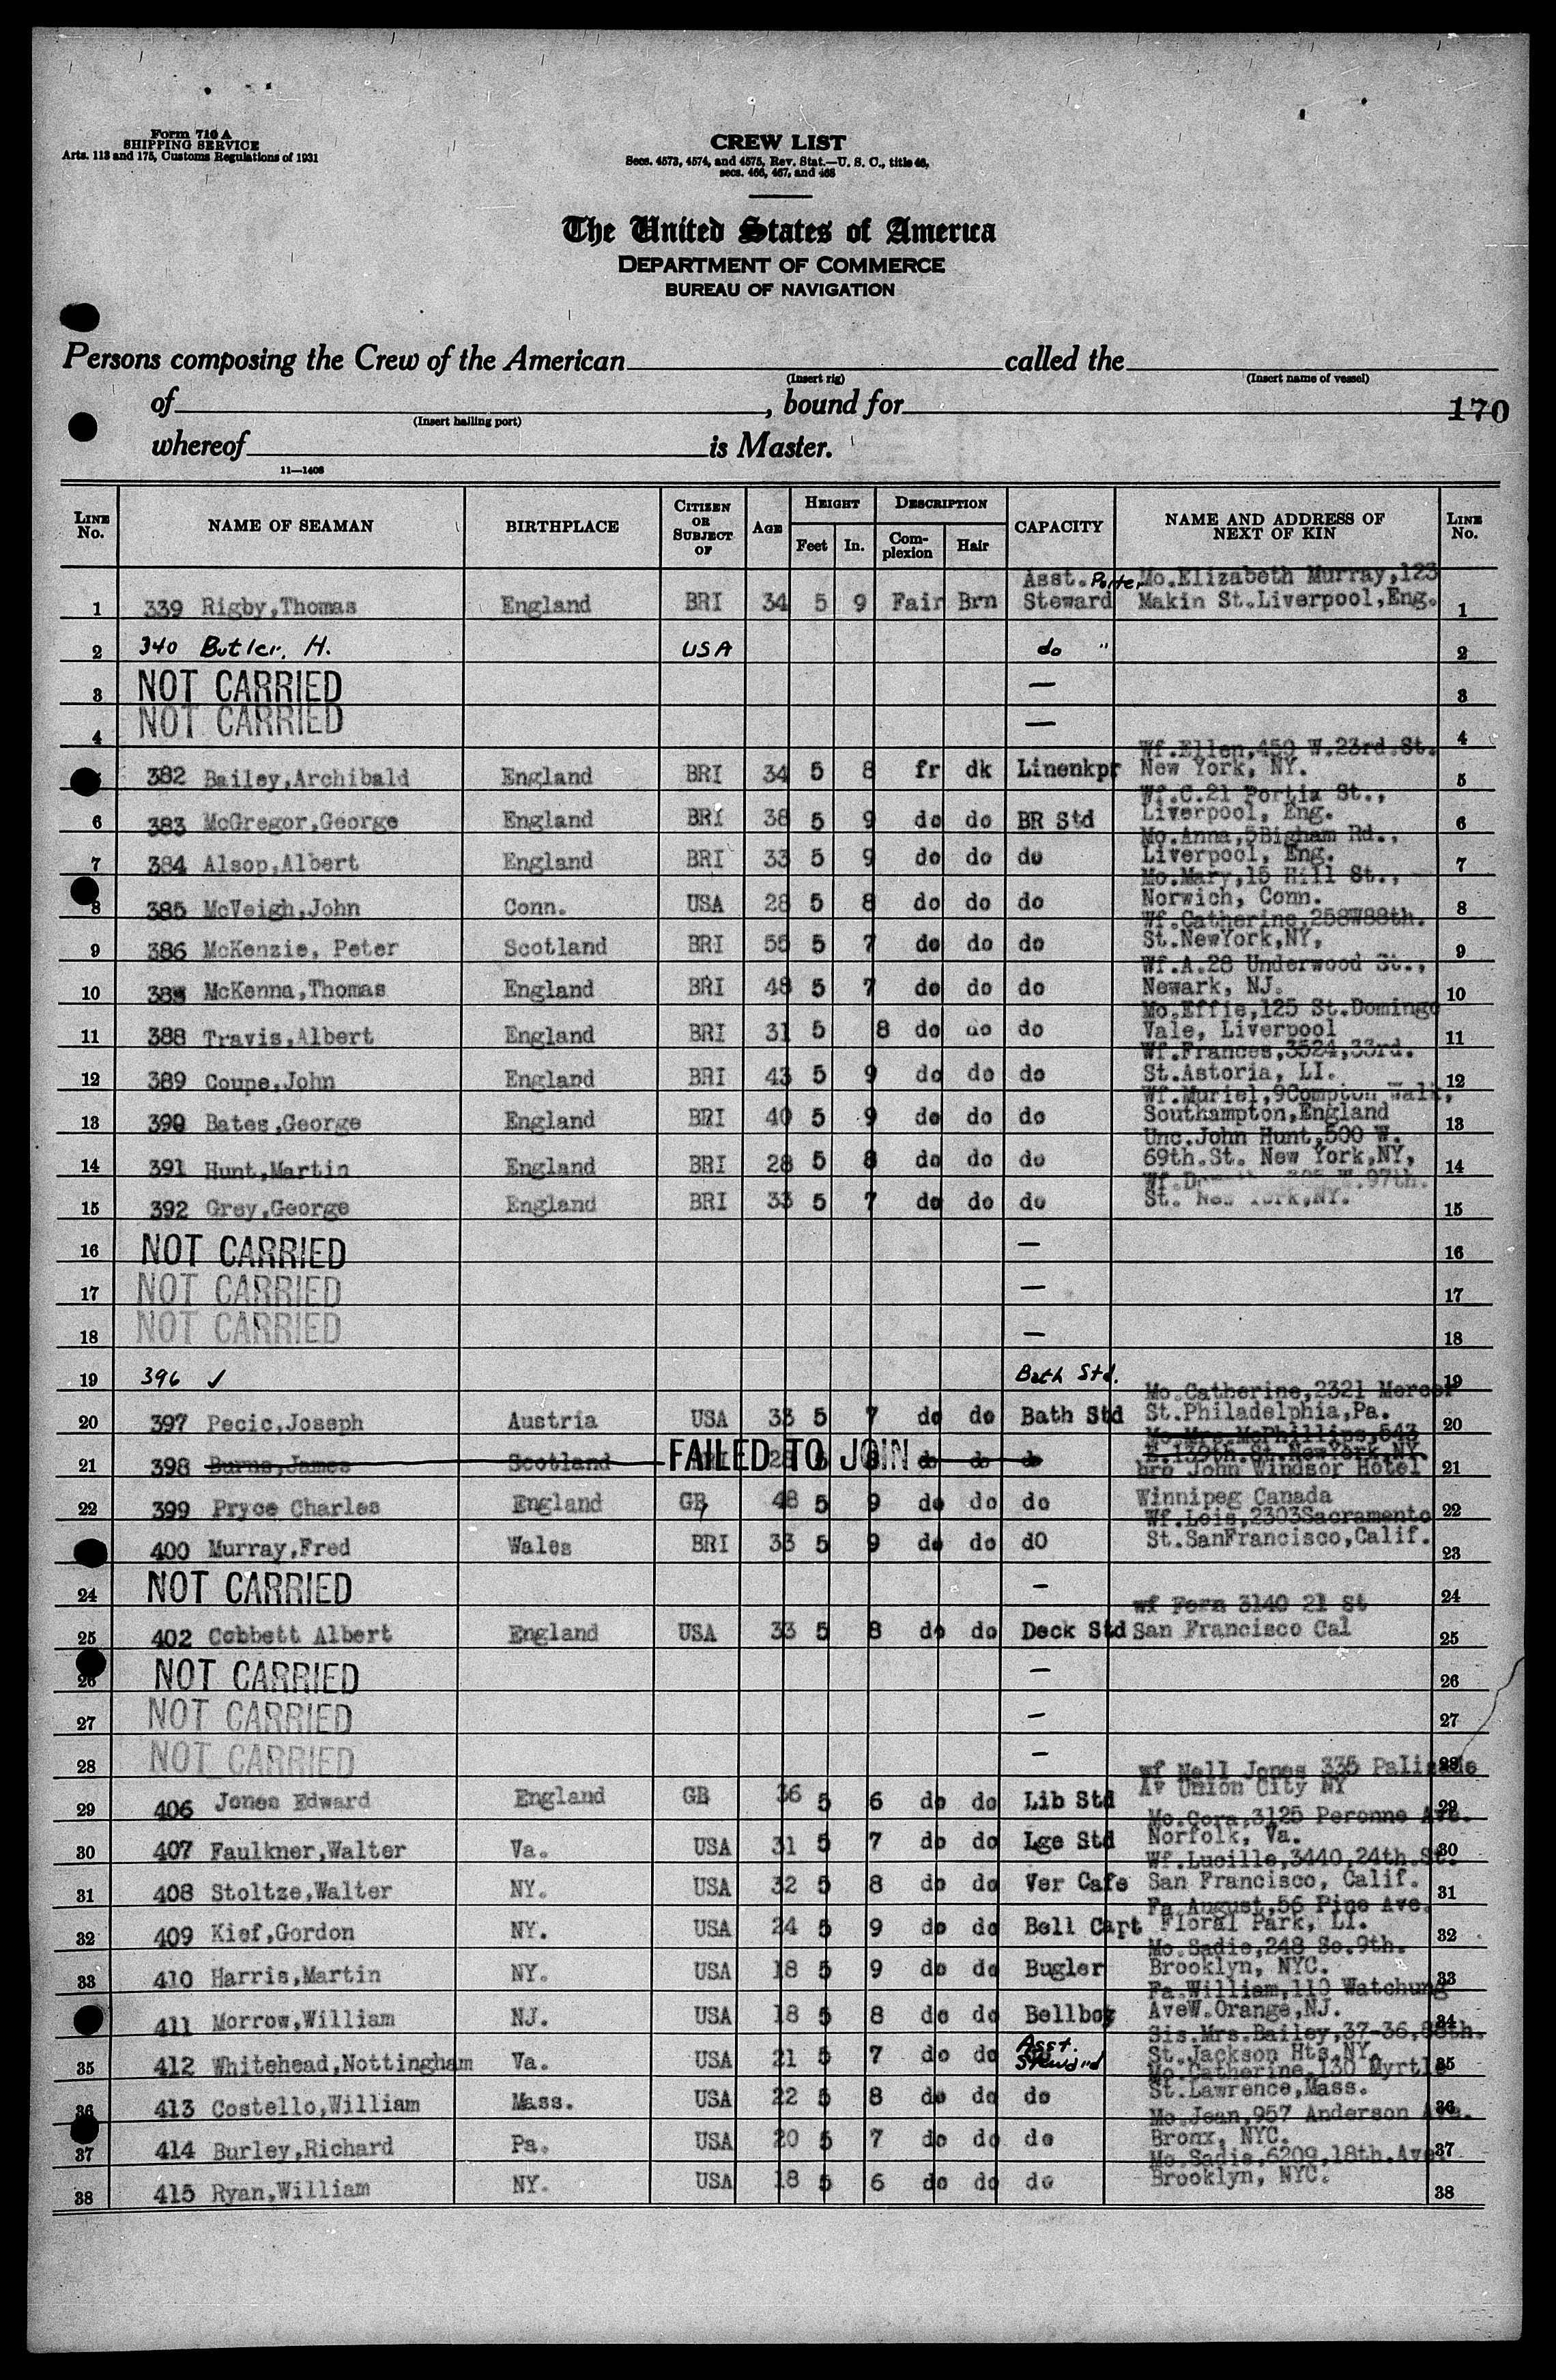 Form 710 A
SHIPPING SERVICE
Arts. 113 and 175, Customs Regulations of 1931
CREW LIST
Secs. 4573, 4574, and 4575, Rev. Stat.—U. S. C., title 46,
secs. 466, 467, and 468
The United States of America
DEPARTMENT OF COMMERCE
BUREAU OF NAVIGATION
Persons composing the Crew of the American called the
(Insert rig) (Insert name of vessel)
of , bound for 170
(Insert hailing port)
whereof is Master.
11—1406
LINE No. NAME OF SEAMAN BIRTHPLACE CITIZEN OR SUBJECT OF AGE HEIGHT Feet In. DESCRIPTION Complexion Hair CAPACITY NAME AND ADDRESS OF NEXT OF KIN LINE No.
Asst. Porter Mo.Elizabeth Murray,123
1 339 Rigby,Thomas England BRI 34 5 9 Fair Brn Steward Makin St.Liverpool,Eng. 1
2 340 Butler, H. USA do " 2
3 NOT CARRIED — 3
4 NOT CARRIED — 4
Wf.Ellen,450 W.23rd.St.
382 Bailey,Archibald England BRI 34 5 8 fr dk Linenkpr New York, NY. 5
Wf.C.21 Portia St.,
6 383 McGregor,George England BRI 38 5 9 do do BR Std Liverpool, Eng. 6
Mo.Anna,5Bigham Rd.,
7 384 Alsop,Albert England BRI 33 5 9 do do do Liverpool, Eng. 7
Mo.Mary,15 Hill St.,
8 385 McVeigh,John Conn. USA 28 5 8 do do do Norwich, Conn. 8
Wf.Catherine,258W88th.
9 386 McKenzie, Peter Scotland BRI 55 5 7 do do do St.NewYork,NY, 9
Wf.A.28 Underwood St.,
10 McKenna,Thomas England BRI 48 5 7 do do do Newark, NJ. 10
Mo.Effie,125 St.Domingo
11 388 Travis,Albert England BRI 31 5 8 do do do Vale, Liverpool 11
Wf.Frances,3524,33rd.
12 389 Coupe,John England BRI 43 5 9 do do do St.Astoria, LI. 12
Wf.Muriel,9Compton Walk,
13 390 Bates,George England BRI 40 5 9 do do do Southampton,England 13
Unc.John Hunt,500 W.
14 391 Hunt,Martin England BRI 28 5 8 do do do 69th.St. New York,NY, 14
W.97th.
15 392 Grey,George England BRI 33 5 7 do do do St. New York,NY. 15
16 NOT CARRIED — 16
17 NOT CARRIED — 17
18 NOT CARRIED — 18
19 396 ✓ Bath Std. 19
Mo.Catherine,2321 Mercer
20 397 Pecic,Joseph Austria USA 33 5 7 do do Bath Std St.Philadelphia,Pa. 20
Mo.Mrs.McPhillips,543
E.139th.St.NewYork,NY.
21 398 Burns,James Scotland FAILED TO JOIN do do do 21
bro John Windsor Hotel
22 399 Pryce Charles England GB 48 5 9 do do do Winnipeg Canada 22
Wf.Lois,2303Sacramento
400 Murray,Fred Wales BRI 33 5 9 do do dO St.SanFrancisco,Calif. 23
24 NOT CARRIED — 24
wf Fern 3140 21 St
25 402 Cobbett Albert England USA 33 5 8 do do Deck Std San Francisco Cal 25
26 NOT CARRIED — 26
27 NOT CARRIED — 27
28 NOT CARRIED — 28
wf Nell Jones 335 Palisade
29 406 Jones Edward England GB 36 5 6 do do Lib Std Av Union City NY 29
Mo.Cora,3125 Peronne Ave.
30 407 Faulkner,Walter Va. USA 31 5 7 do do Lge Std Norfolk, Va. 30
Wf.Lucille,3440,24th.St.
31 408 Stoltze,Walter NY. USA 32 5 8 do do Ver Cafe San Francisco, Calif. 31
Fa.August,56 Pine Ave.
32 409 Kief,Gordon NY. USA 24 5 9 do do Bell Capt Floral Park, LI. 32
Mo.Sadie,248 So.9th.
33 410 Harris,Martin NY. USA 18 5 9 do do Bugler Brooklyn, NYC. 33
Fa.William,110 Watchung
411 Morrow,William NJ. USA 18 5 8 do do Bellboy AveW.Orange,NJ. 34
Sis.Mrs.Bailey,37-36,88th.
35 412 Whitehead,Nottingham Va. USA 21 5 7 do do Asst. Steward St.Jackson Hts.NY. 35
Mo.Catherine,130 Myrtle
36 413 Costello,William Mass. USA 22 5 8 do do do St.Lawrence,Mass. 36
Mo.Jean,957 Anderson Ave.
37 414 Burley,Richard Pa. USA 20 5 7 do do do Bronx, NYC. 37
Mo.Sadie,6209,18th.Ave.
38 415 Ryan,William NY. USA 18 5 6 do do do Brooklyn, NYC. 38